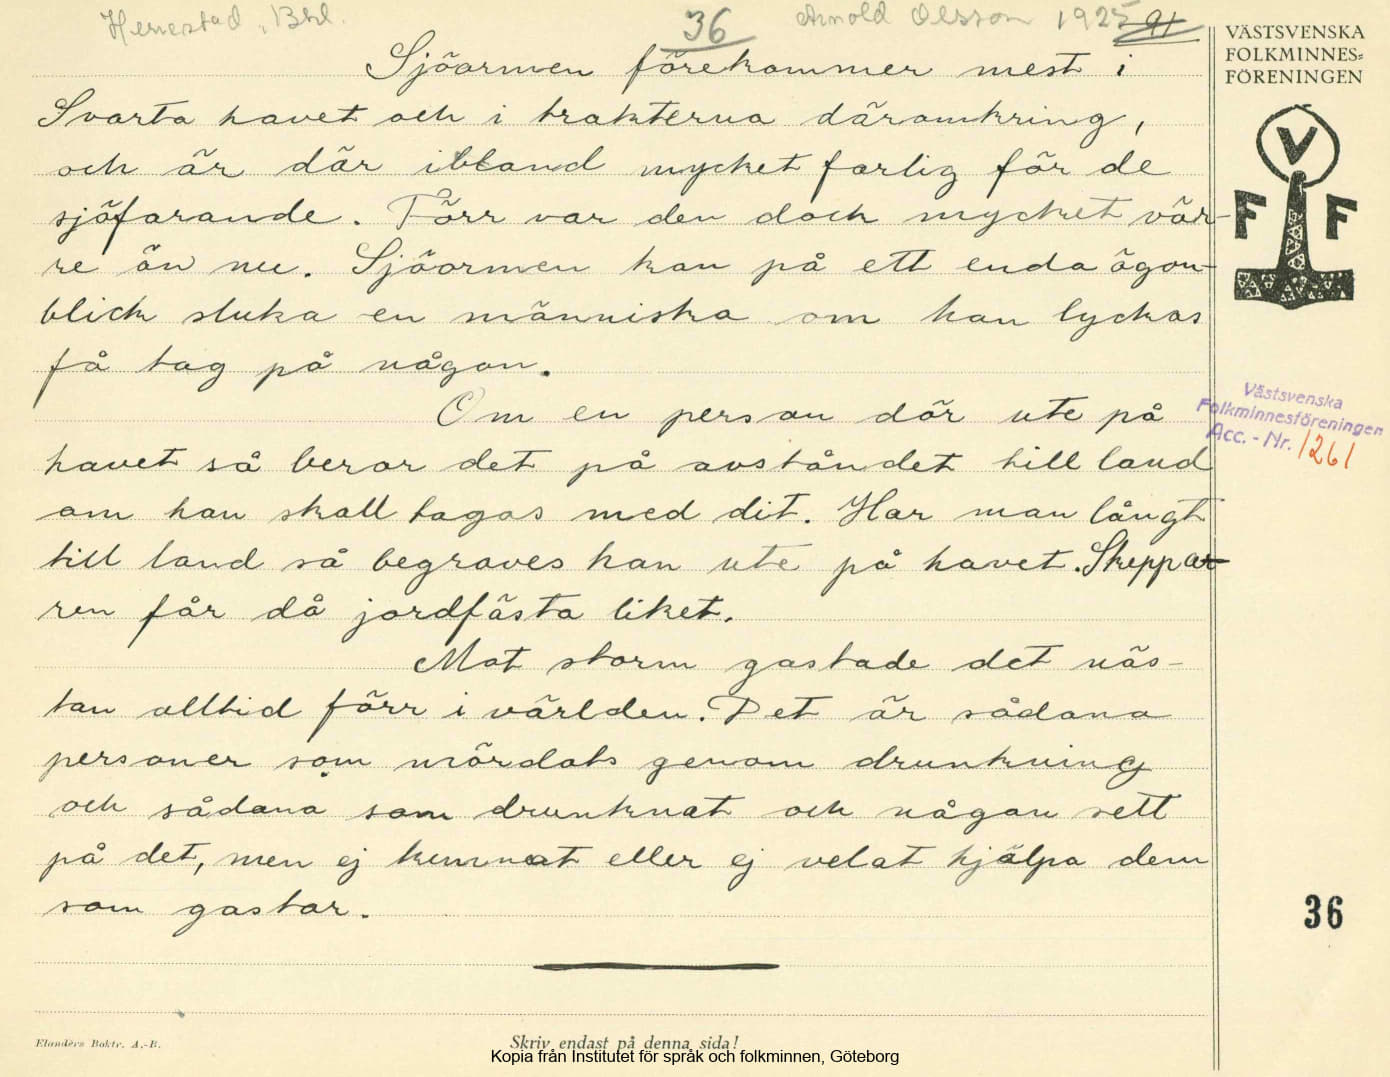 Herrestad, Bhl. 36 Arnold Olsson 1925 91
VÄSTSVENSKA
FOLKMINNES=
FÖRENINGEN
V
F F
Sjöormen förekommer mest i
Svarta havet och i trakterna däromkring,
och är där ibland mycket farlig för de
sjöfarande. Förr var den dock mycket vär-
re än nu. Sjöormen kan på ett enda ögon-
blick sluka en människa om han lyckas
få tag på någon.
Om en person dör ute på
havet så beror det på avståndet till land
om han skall tagas med dit. Har man långt
till land så begraves han ute på havet. Skeppar-
ren får då jordfästa liket.
Mot storm gastade det näs-
tan alltid förr i världen. Det är sådana
personer som mördats genom drunkning
och sådana som drunknat och någon sett
på det, men ej kunnat eller ej velat hjälpa dem
som gastar.
Västsvenska
Folkminnesföreningen
Acc. - Nr. 1261
36
Elanders Boktr. A.-B.
Skriv endast på denna sida!
Kopia från Institutet för språk och folkminnen, Göteborg